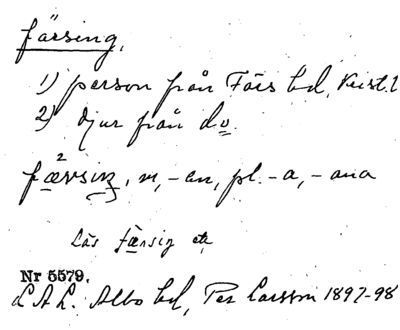 färsing,
1) person från Färs hd, Krist. l
2) djur från do.
fær²siŋ, m, -en, pl. -a, -ana
Läs færsig etc
Nr 5579.
L A L. Albo hd, Per Larsson 1897-98